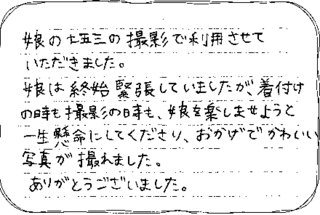 娘の七五三の撮影で利用させて
いただきました。
娘は終始緊張していましたが着付け
の時も撮影の時も、娘を楽しませようと
一生懸命にしてくださり、おかげでかわいい
写真が撮れました。
ありがとうございました。